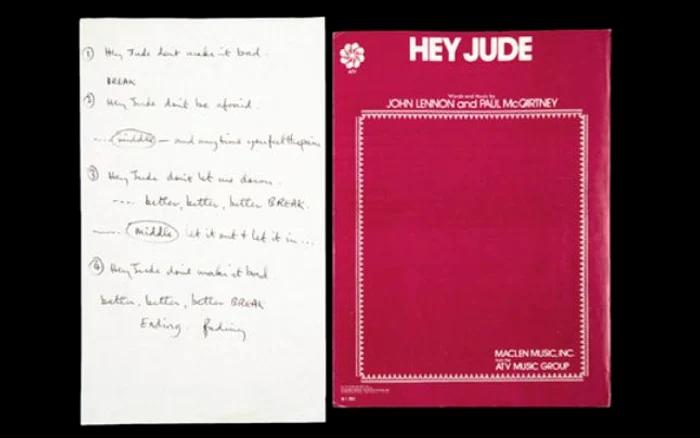 ① Hey Jude dont make it bad.
BREAK
② Hey Jude don't be afraid.
.... middle — and anytime you feel the pain
③ Hey Jude don't let me down.
---- better, better, better BREAK.
...... middle let it out & let it in ...
④ Hey Jude dont make it bad
better, better, better BREAK
Ending. fading
ATV
HEY JUDE
Words and Music by
JOHN LENNON and PAUL McCARTNEY
MACLEN MUSIC, INC.
ATV MUSIC GROUP